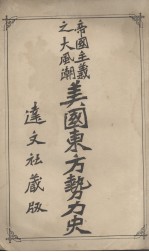 帝國主義
之大風潮
美國東方勢力史
達文社蔵版